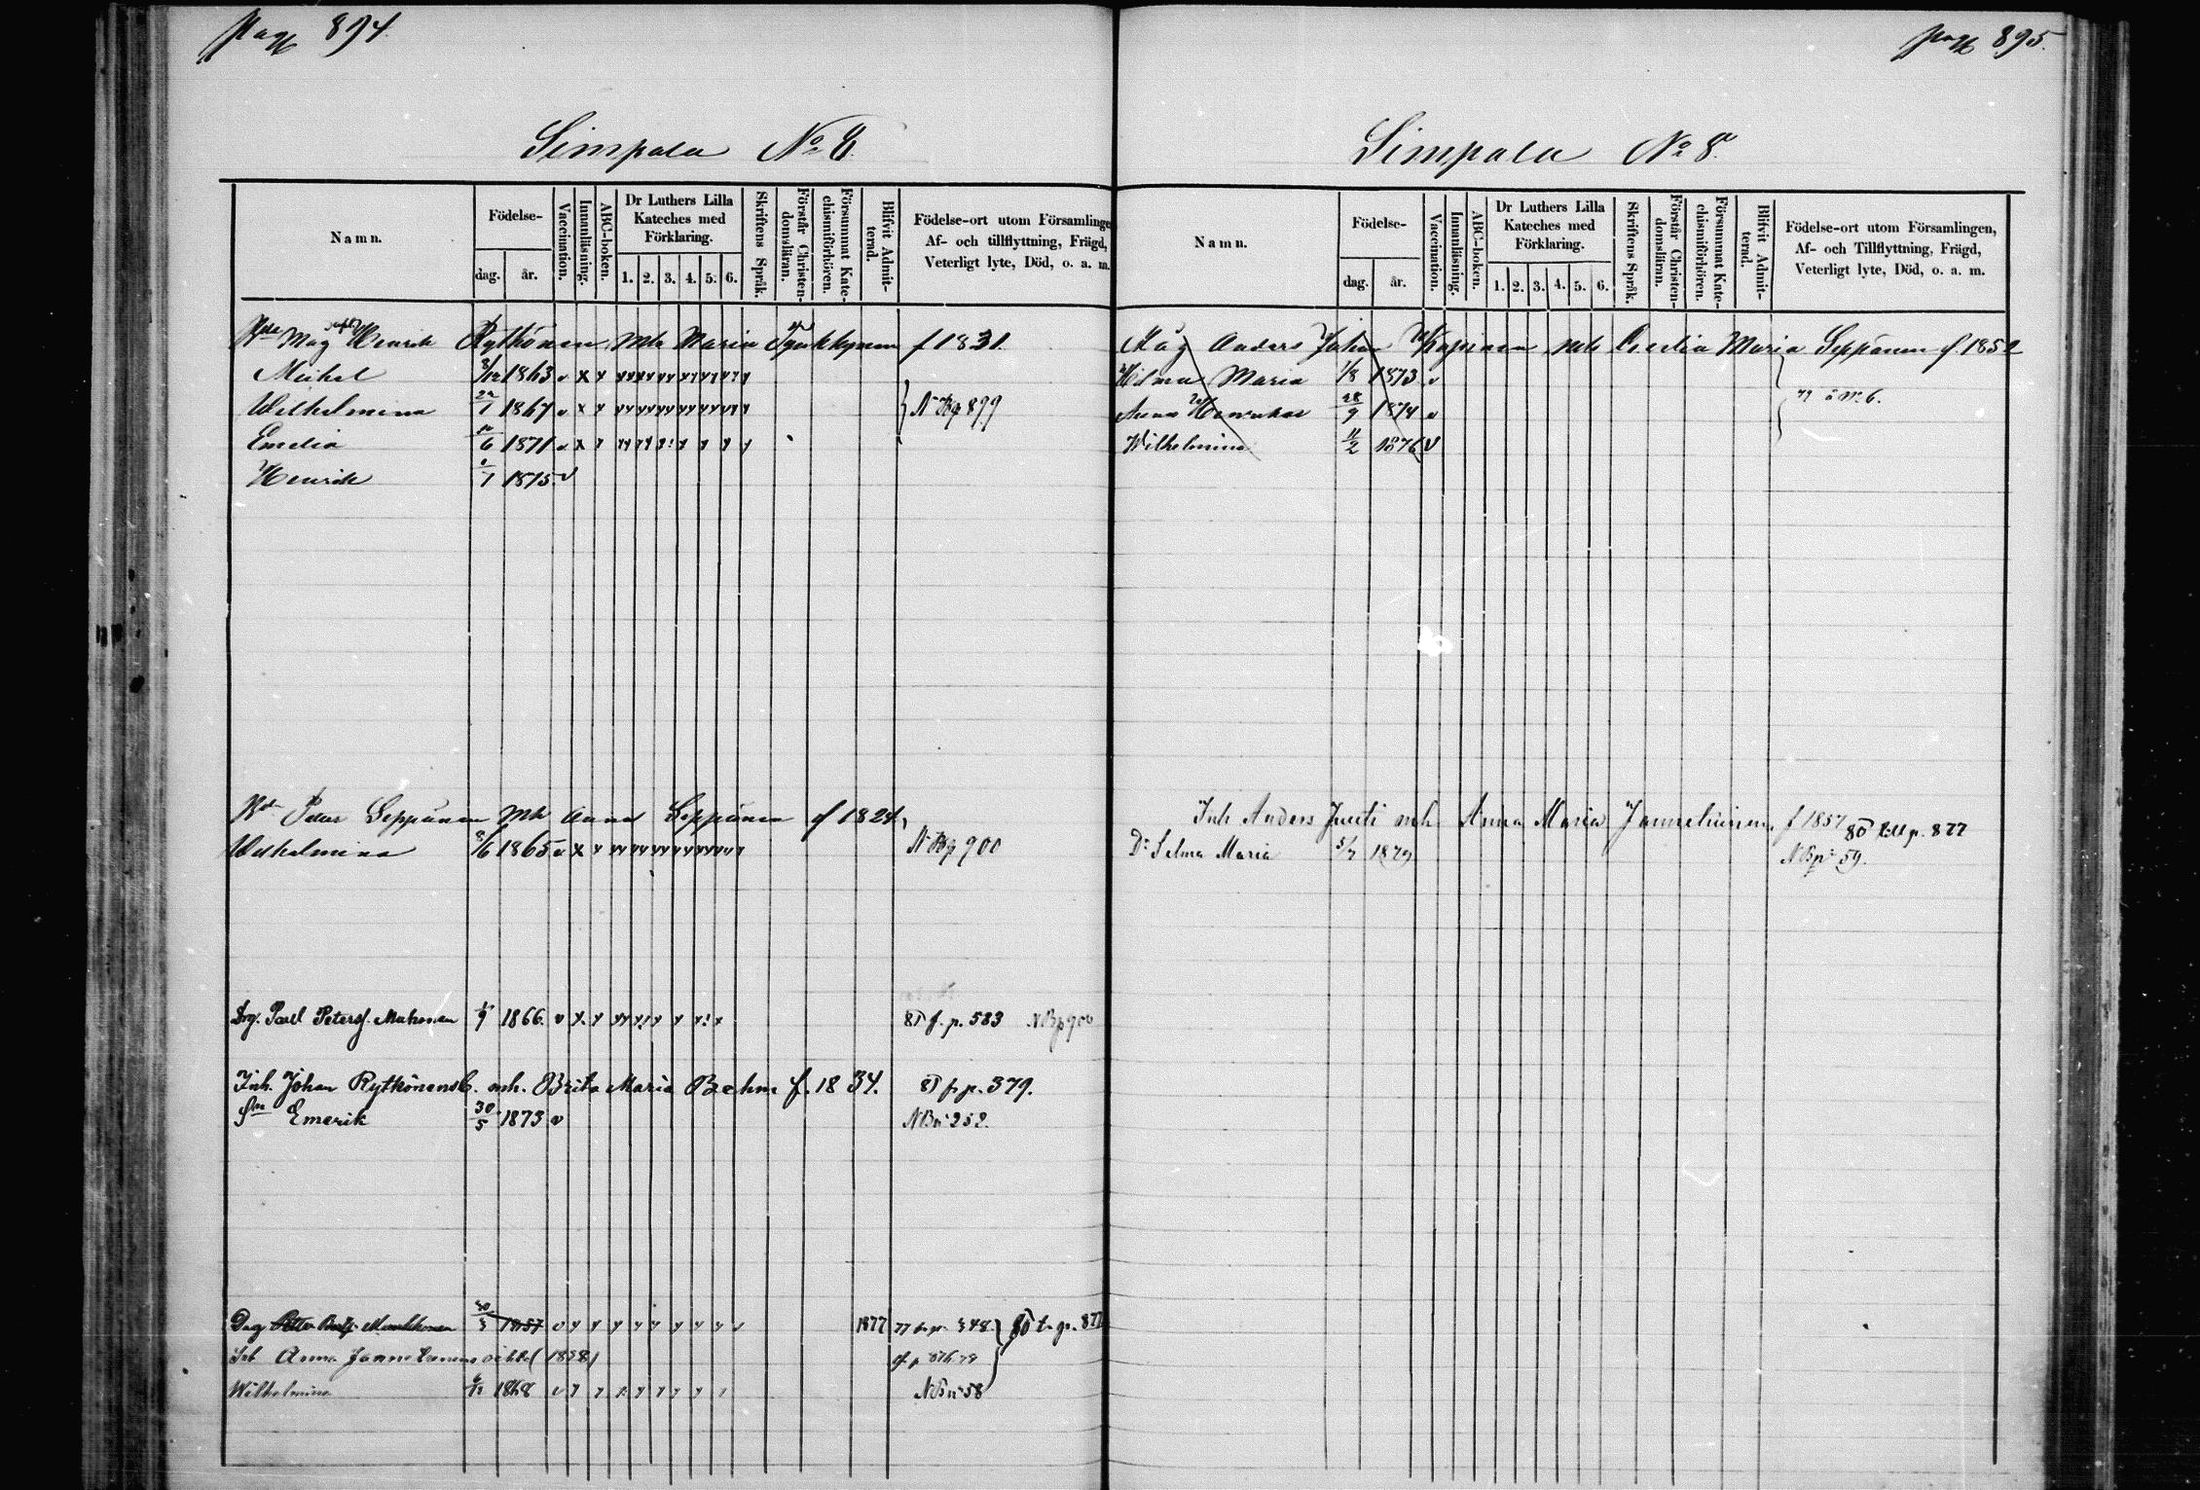 pag 894
Simpala No 8.
Namn.
Födelse-
dag. år.
Vaccination.
Innanläsning.
ABC-boken.
Dr Luthers Lilla
Kateches med
Förklaring.
1. 2. 3. 4. 5. 6.
Skriftens Språk.
Förstår Christen-
domsläran.
Försummat Kate-
chismiförhören.
Blifvit Admit-
terad.
Födelse-ort utom Församlinge
Af- och tillflyttning, Frägd,
Veterligt lyte, Död, o. a. m.
Mag Henrik Rytkönen mh Maria f 1831.
Mickel 8/12 1863 v
Wilhelmina 22/1 1867 v
N Bp 899
Emelia 1871 v
Henrik 1875 v
Petter Seppänen mh Anna Seppänen f 1824
Wilhelmina 8/6 1865 v
N Bp 900
Drg. Paul Petersf. Muhonen 1866. v
80 f. p. 583 N Bp 900
Inh. Johan Rytkönens C. mh. Brita Maria Behm f. 1834. 80 f p. 379.
Sn Emerik 30/5 1873 v
N B n 252.
Drg Petter 1857 v
1877 77 fr p. 348. 80 t. p. 877
Anna (1858)
Wilhelmina 1868 v
N B n 58
pag 895.
Simpala No 8.
Namn.
Födelse-
dag. år.
Vaccination.
Innanläsning.
ABC-boken.
Dr Luthers Lilla
Kateches med
Förklaring.
1. 2. 3. 4. 5. 6.
Skriftens Språk.
Förstår Christen-
domsläran.
Försummat Kate-
chismiförhören.
Blifvit Admit-
terad.
Födelse-ort utom Församlingen,
Af- och Tillflyttning, Frägd,
Veterligt lyte, Död, o. a. m.
Måg Anders Johan mh Maria Seppänen f. 1852
Hilma Maria 1/8 1873 v
Anna 28/9 1874 v
Wilhelmina 11/2 1876 v
Inh Anders Juuti mh Anna Maria f 1857 80 till p. 877
Dr Selma Maria 5/7 1879
N B p 59.